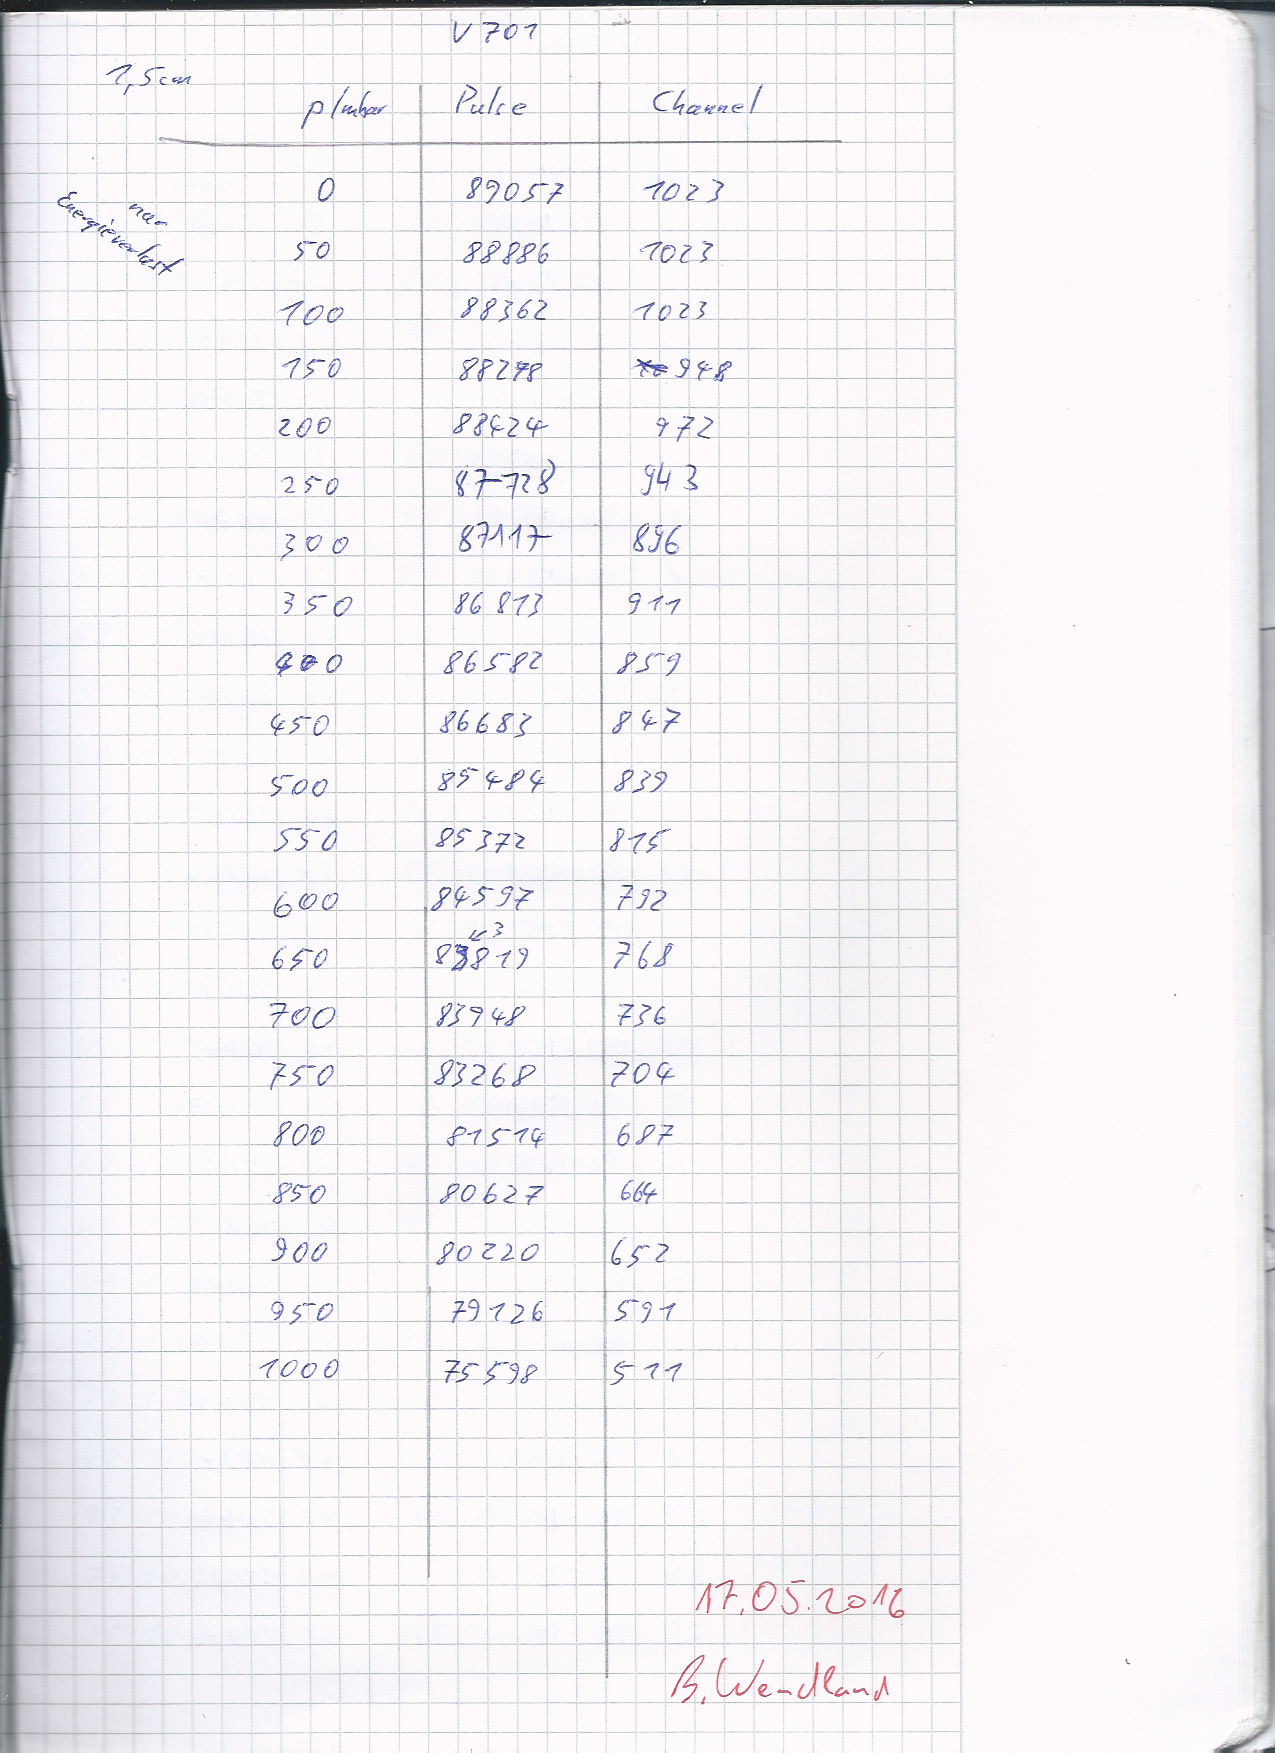 V 701
1,5cm
p/mbar Pulse Channel
0 89057 1023
nur
Energieverlust
50 88886 1023
100 88362 1023
150 88278 948
200 88424 972
250 87728 943
300 87117 896
350 86813 911
400 86582 859
450 86683 847
500 85484 839
550 85372 815
600 84597 792
3
650 83819 768
700 83948 736
750 83268 704
800 81514 687
850 80627 664
900 80220 652
950 79126 591
1000 75598 511
17.05.2016
B. Wendland